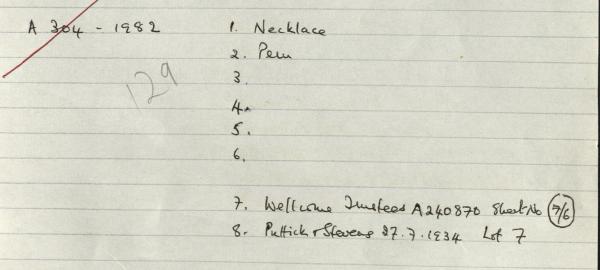 A 304 - 1982
1. Necklace
2. Peru
129
3.
4.
5.
6.
7. Wellcome Trustees A240870 Sheet No 7/6
8. Puttick & Stevens 27.7.1934 Lot 7